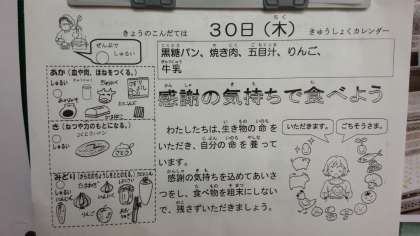 きょうのこんだては
30日(木)
きゅうしょくカレンダー
ぜんぶで
しゅるい
黒糖パン、焼き肉、五目汁、りんご、
牛乳
あか(血や肉、ほねをつくる。)
しゅるい
き(ねつや力のもとになる。)
しゅるい
みどり(からだのちょうしをととのえる。)
しゅるい
感謝の気持ちで食べよう
わたしたちは、生き物の命を
いただき、自分の命を養って
います。
感謝の気持ちを込めてあいさ
つをし、食べ物を粗末にしない
で、残さずいただきましょう。
いただきます。
ごちそうさま。